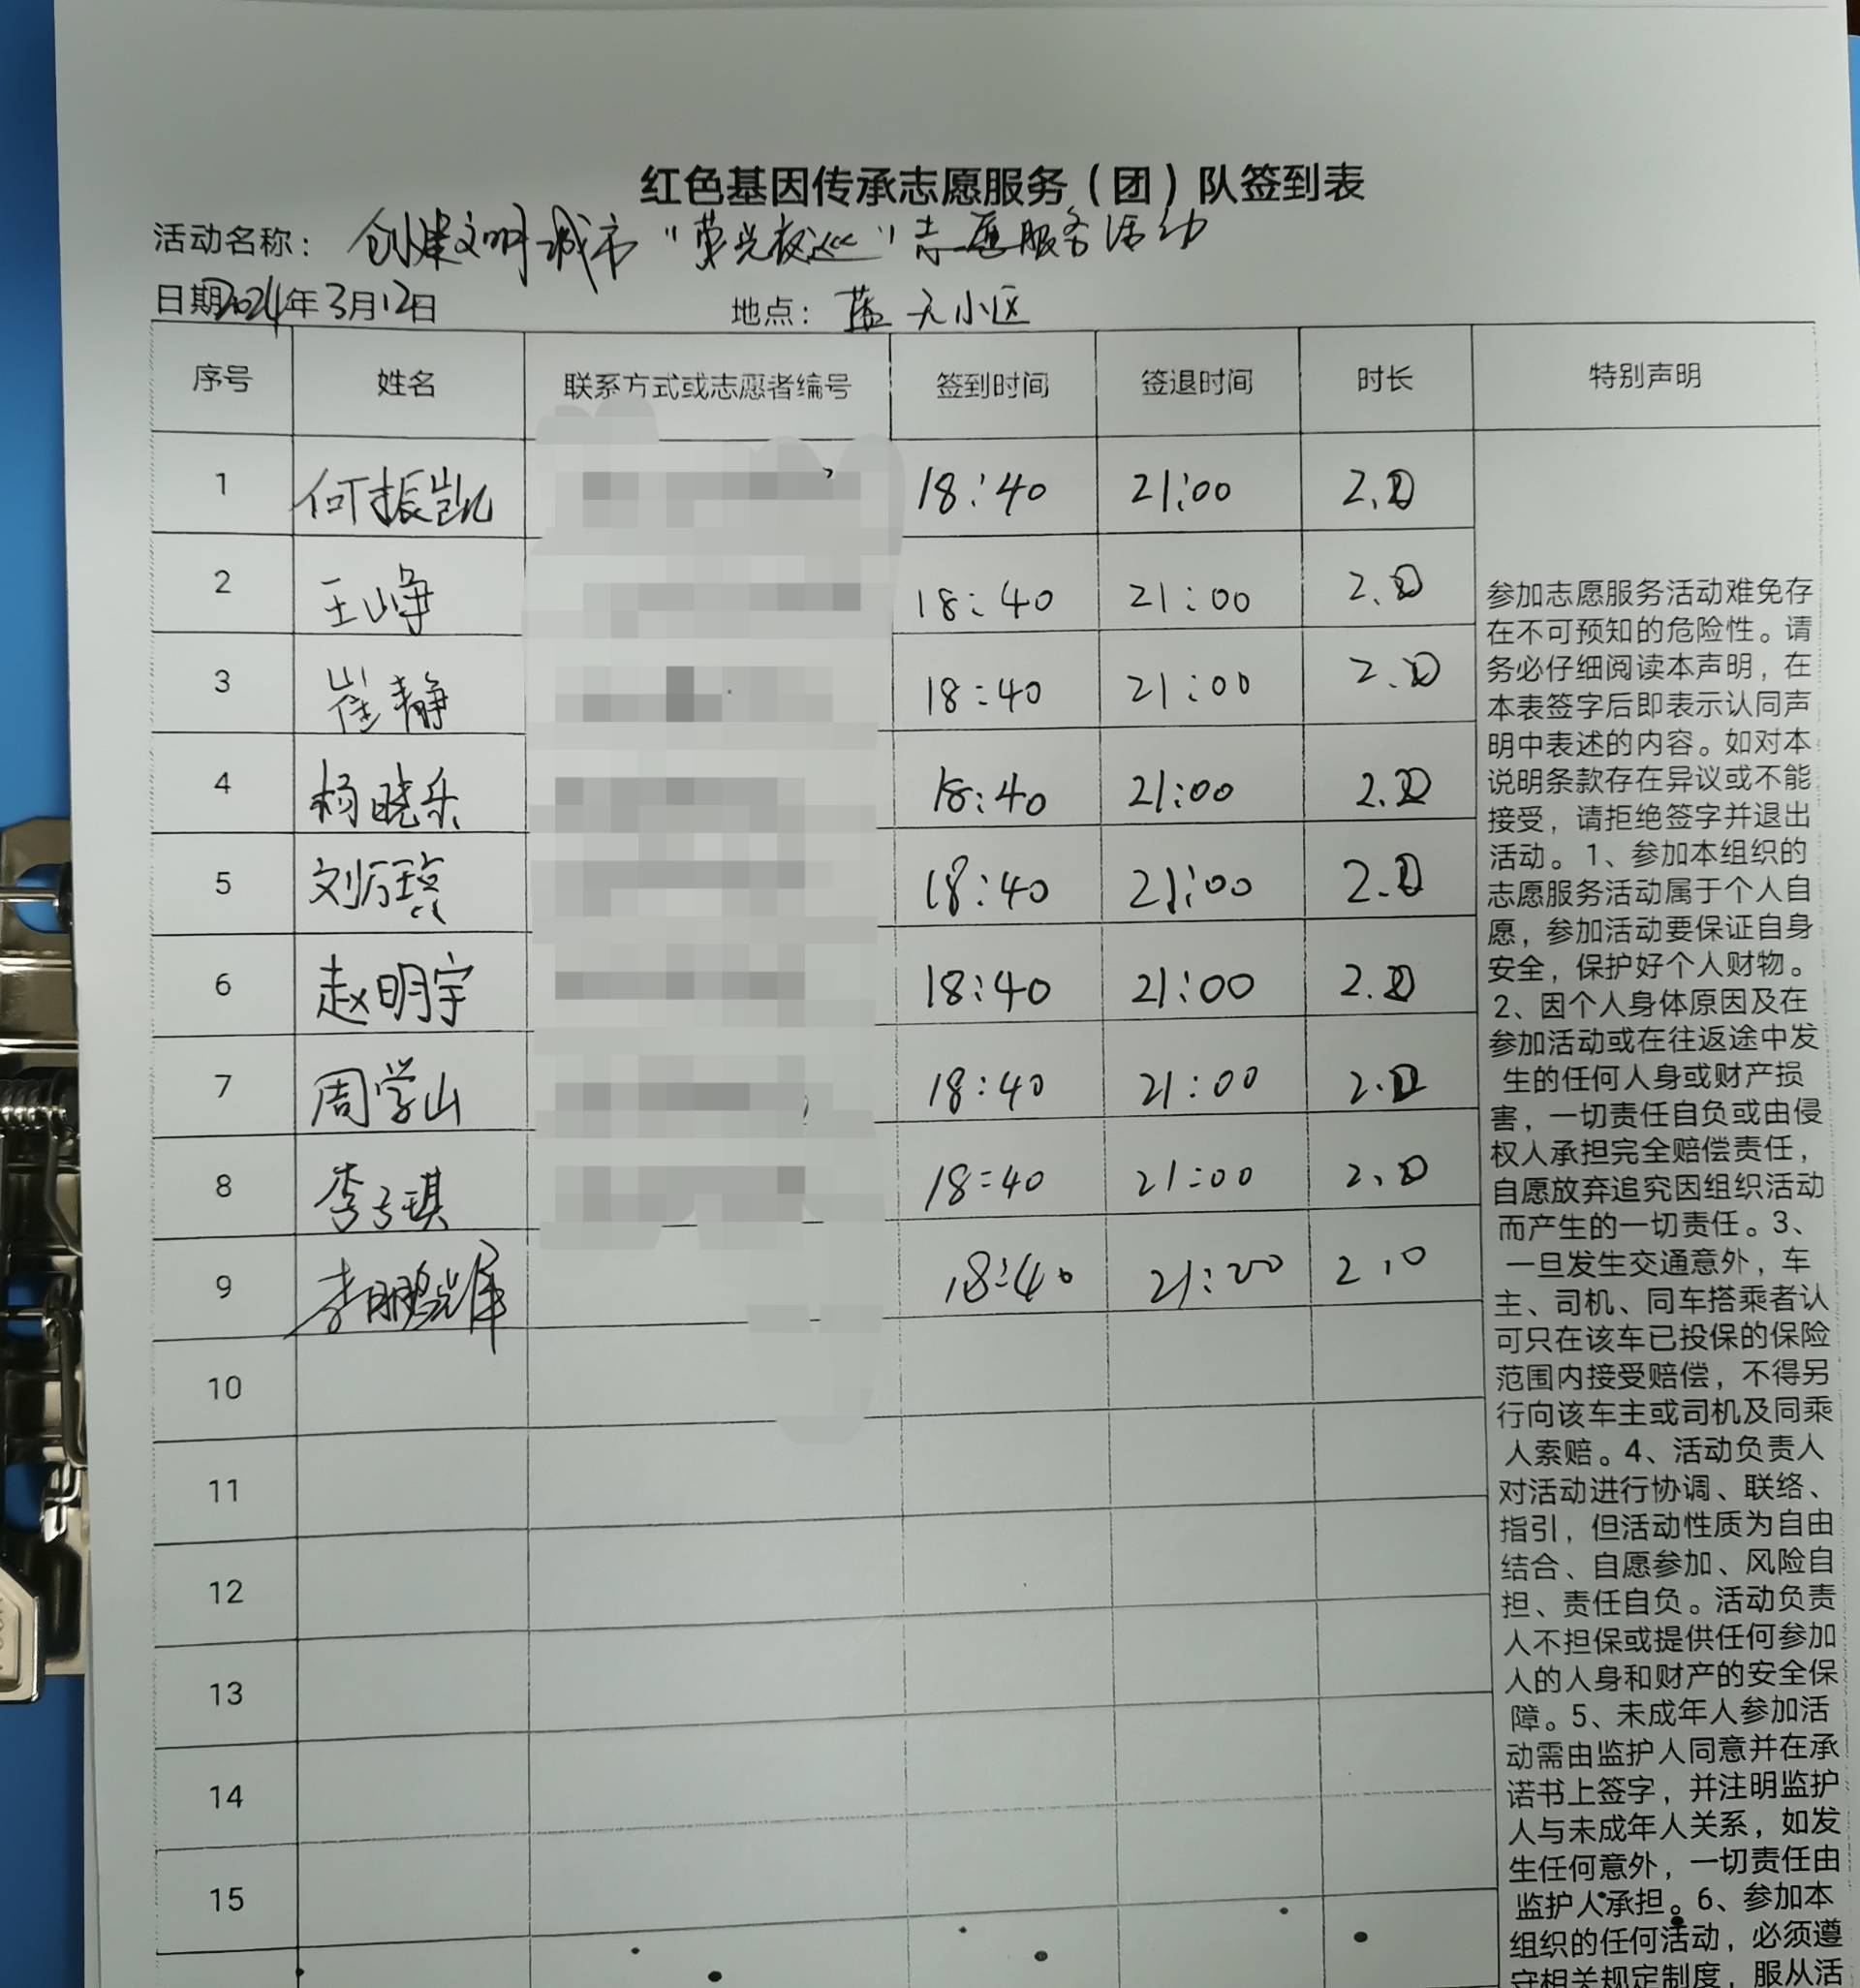 红色基因传承志愿服务（团）队签到表
活动名称：创建文明城市“荧光夜巡”志愿服务活动
日期2024年3月12日 地点：蓝天小区
序号 姓名 联系方式或志愿者编号 签到时间 签退时间 时长 特别声明
1 何振凯 18:40 21:00 2.0
2 王峥 18:40 21:00 2.0
3 崔静 18:40 21:00 2.0
4 杨晓乐 18:40 21:00 2.0
5 刘 18:40 21:00 2.0
6 赵明宇 18:40 21:00 2.0
7 周学山 18:40 21:00 2.0
8 李 琪 18:40 21:00 2.0
9 李鹏 18:40 21:00 2.0
10
11
12
13
14
15
参加志愿服务活动难免存
在不可预知的危险性。请
务必仔细阅读本声明，在
本表签字后即表示认同声
明中表述的内容。如对本
说明条款存在异议或不能
接受，请拒绝签字并退出
活动。1、参加本组织的
志愿服务活动属于个人自
愿，参加活动要保证自身
安全，保护好个人财物。
2、因个人身体原因及在
参加活动或在往返途中发
生的任何人身或财产损
害，一切责任自负或由侵
权人承担完全赔偿责任，
自愿放弃追究因组织活动
而产生的一切责任。3、
一旦发生交通意外，车
主、司机、同车搭乘者认
可只在该车已投保的保险
范围内接受赔偿，不得另
行向该车主或司机及同乘
人索赔。4、活动负责人
对活动进行协调、联络、
指引，但活动性质为自由
结合、自愿参加、风险自
担、责任自负。活动负责
人不担保或提供任何参加
人的人身和财产的安全保
障。5、未成年人参加活
动需由监护人同意并在承
诺书上签字，并注明监护
人与未成年人关系，如发
生任何意外，一切责任由
监护人承担。6、参加本
组织的任何活动，必须遵
守相关规定制度，服从活